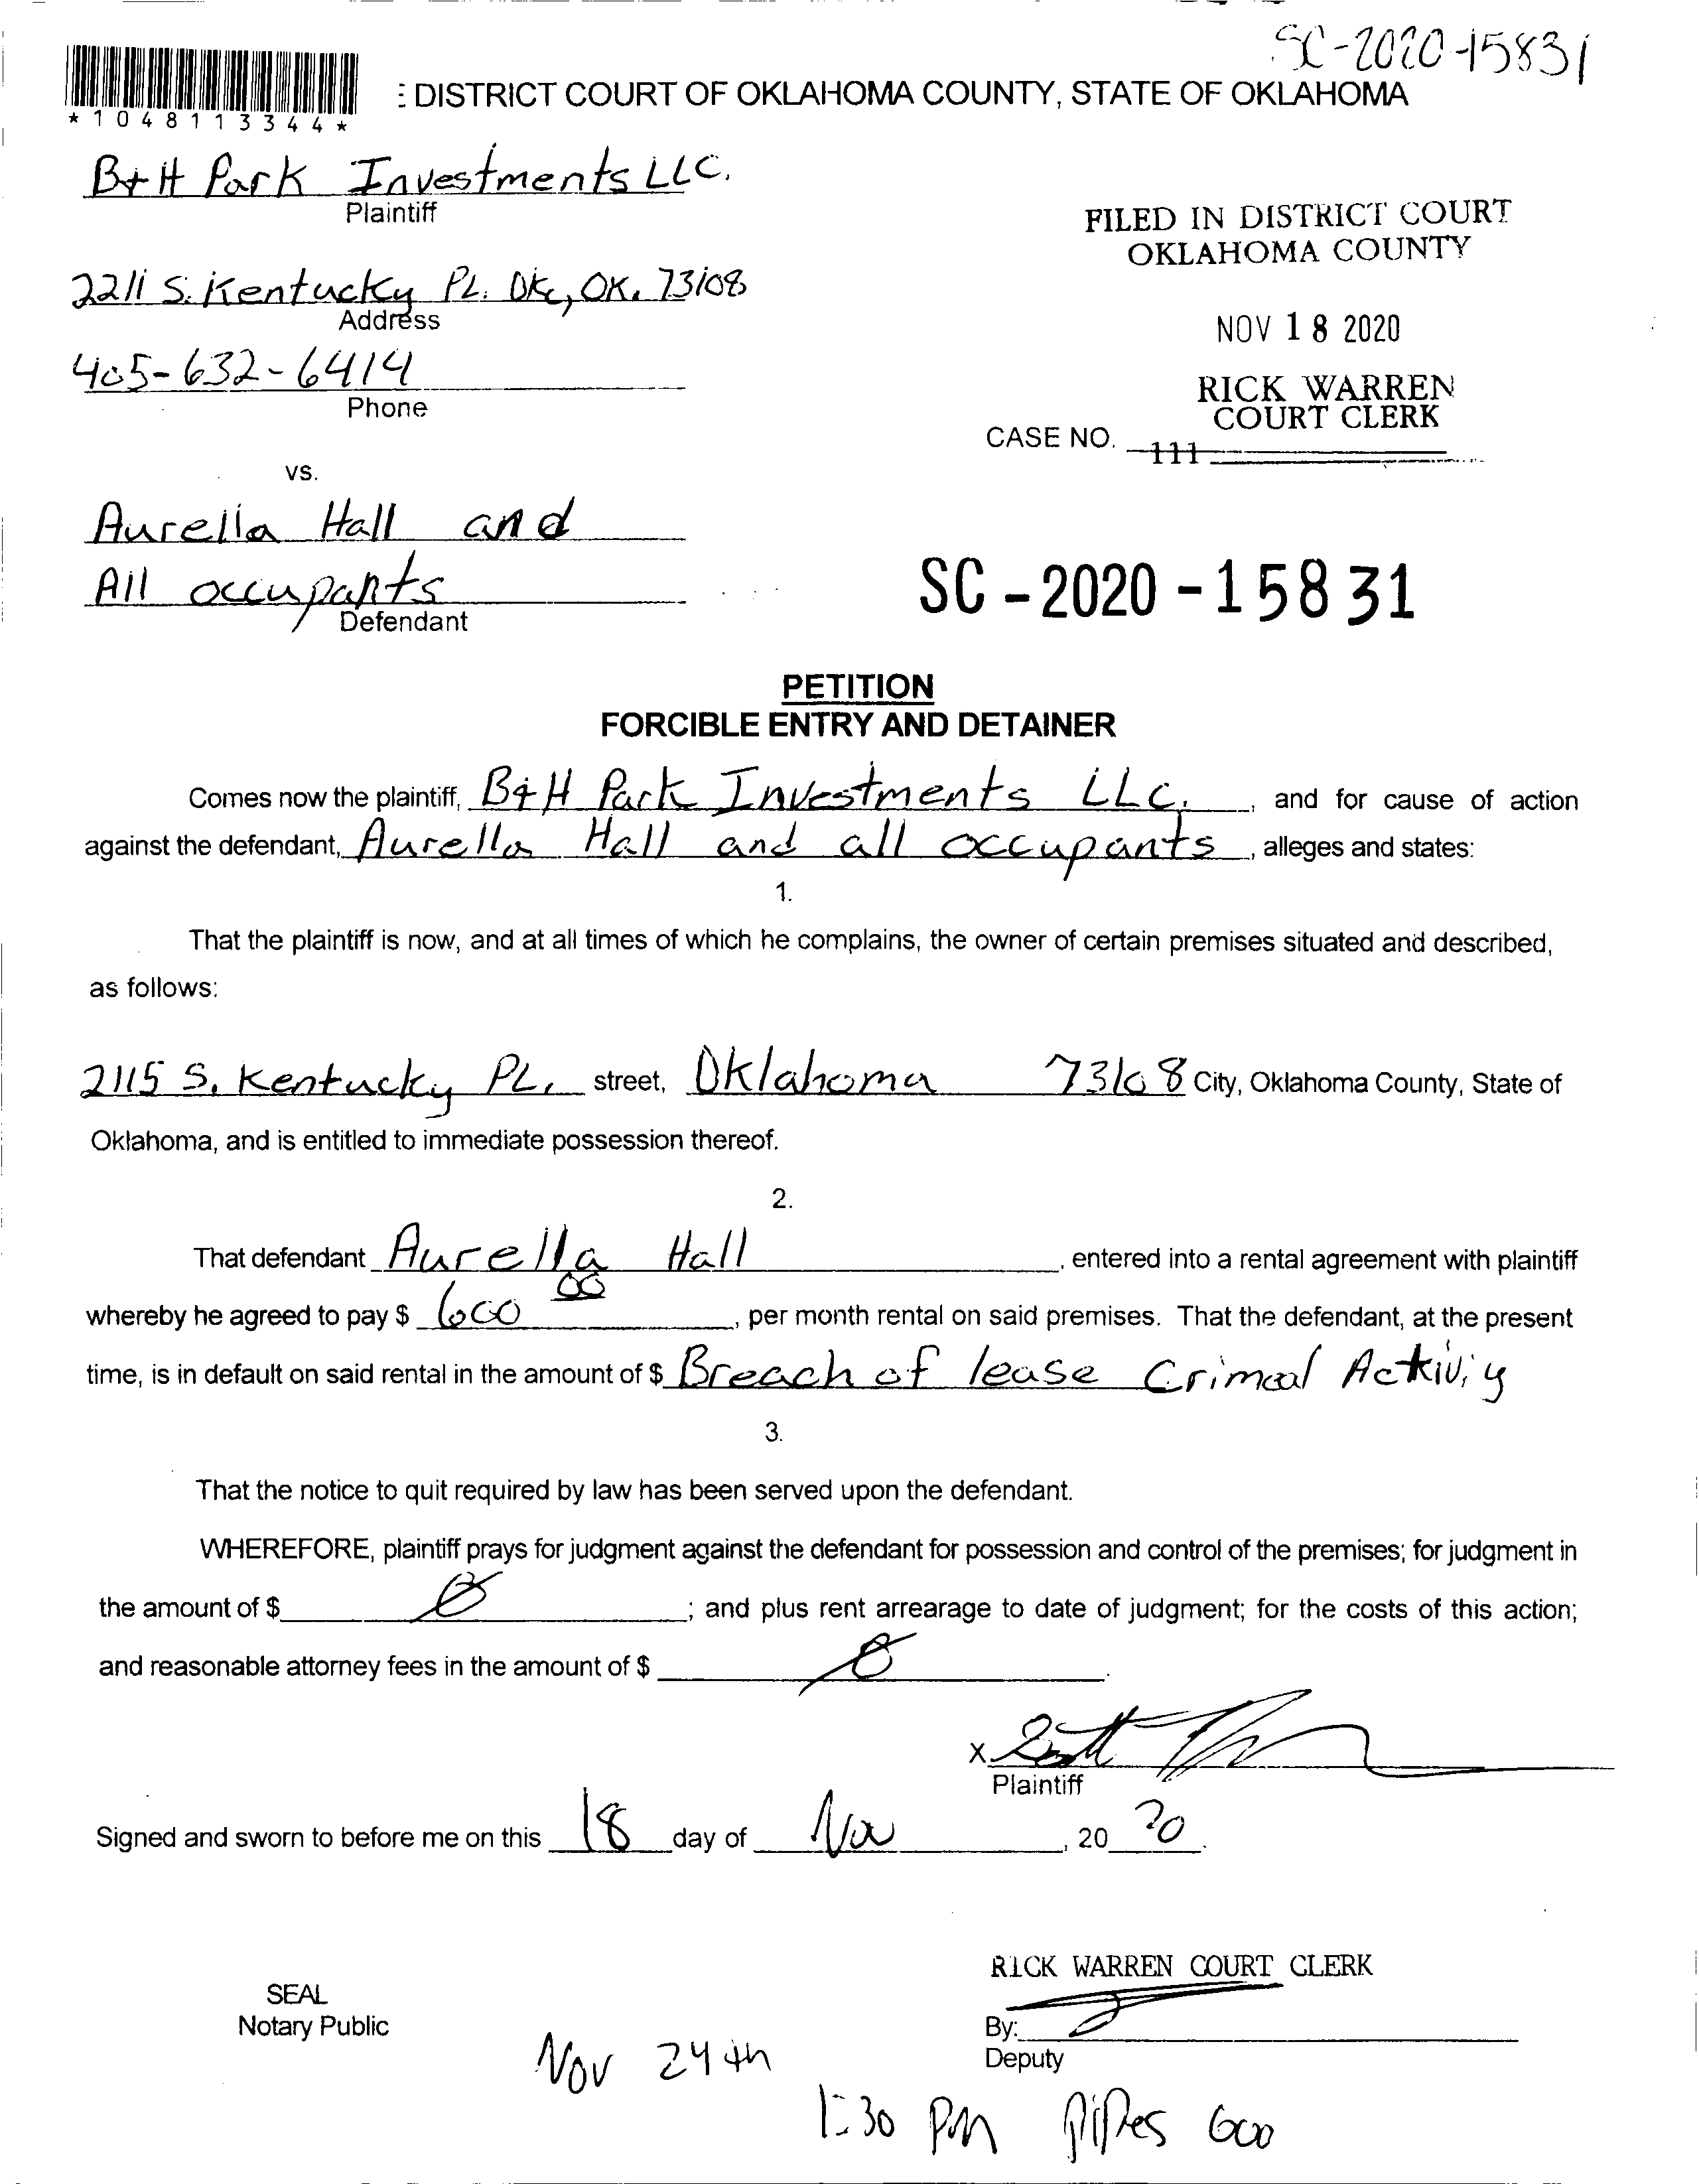 SC-2020-15831
: DISTRICT COURT OF OKLAHOMA COUNTY, STATE OF OKLAHOMA
*1048113344*
B+H Park Investments LLC.
Plaintiff
FILED IN DISTRICT COURT
OKLAHOMA COUNTY
2211 S. Kentucky PL. Okc, OK. 73108
Address
NOV 18 2020
405-632-6414
Phone
RICK WARREN
COURT CLERK
CASE NO.
111
vs.
Aurella Hall and
All occupants
Defendant
SC-2020-15831
PETITION
FORCIBLE ENTRY AND DETAINER
Comes now the plaintiff, B&H Park Investments LLC., and for cause of action
against the defendant, Aurella Hall and all occupants, alleges and states:
1.
That the plaintiff is now, and at all times of which he complains, the owner of certain premises situated and described,
as follows:
2115 S. Kentucky PL. street, Oklahoma 73108 City, Oklahoma County, State of
Oklahoma, and is entitled to immediate possession thereof.
2.
That defendant Aurella Hall, entered into a rental agreement with plaintiff
whereby he agreed to pay $ 600 00, per month rental on said premises. That the defendant, at the present
time, is in default on said rental in the amount of $ Breach of lease Crimal Activiy
3.
That the notice to quit required by law has been served upon the defendant.
WHEREFORE, plaintiff prays for judgment against the defendant for possession and control of the premises; for judgment in
the amount of $ Ø; and plus rent arrearage to date of judgment; for the costs of this action;
and reasonable attorney fees in the amount of $ Ø.
X
Plaintiff
Signed and sworn to before me on this 18 day of Nov, 20 20.
RICK WARREN COURT CLERK
SEAL
Notary Public
By:
Deputy
Nov 24th
1:30 PM Pipes 600